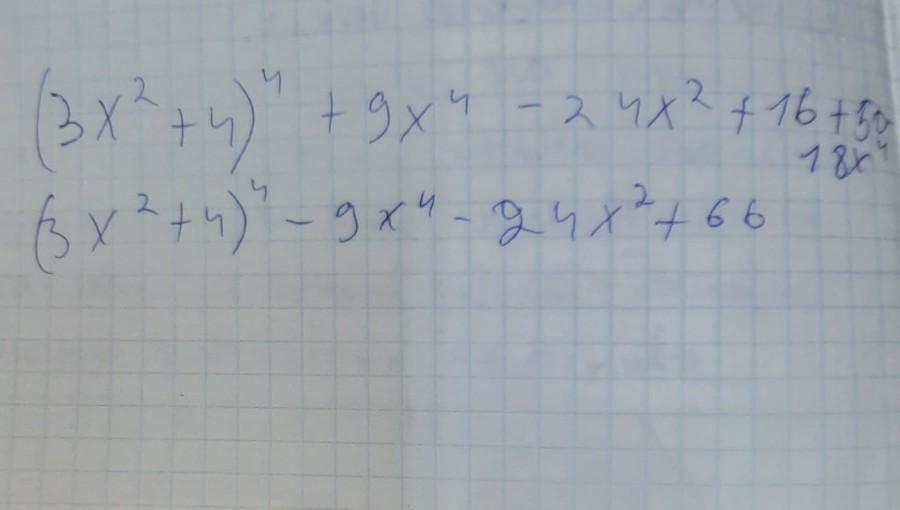 (3x² + 4)⁴ + 9x⁴ - 24x² + 16 + 50
18x⁴
(3x² + 4)⁴ - 9x⁴ - 24x² + 66